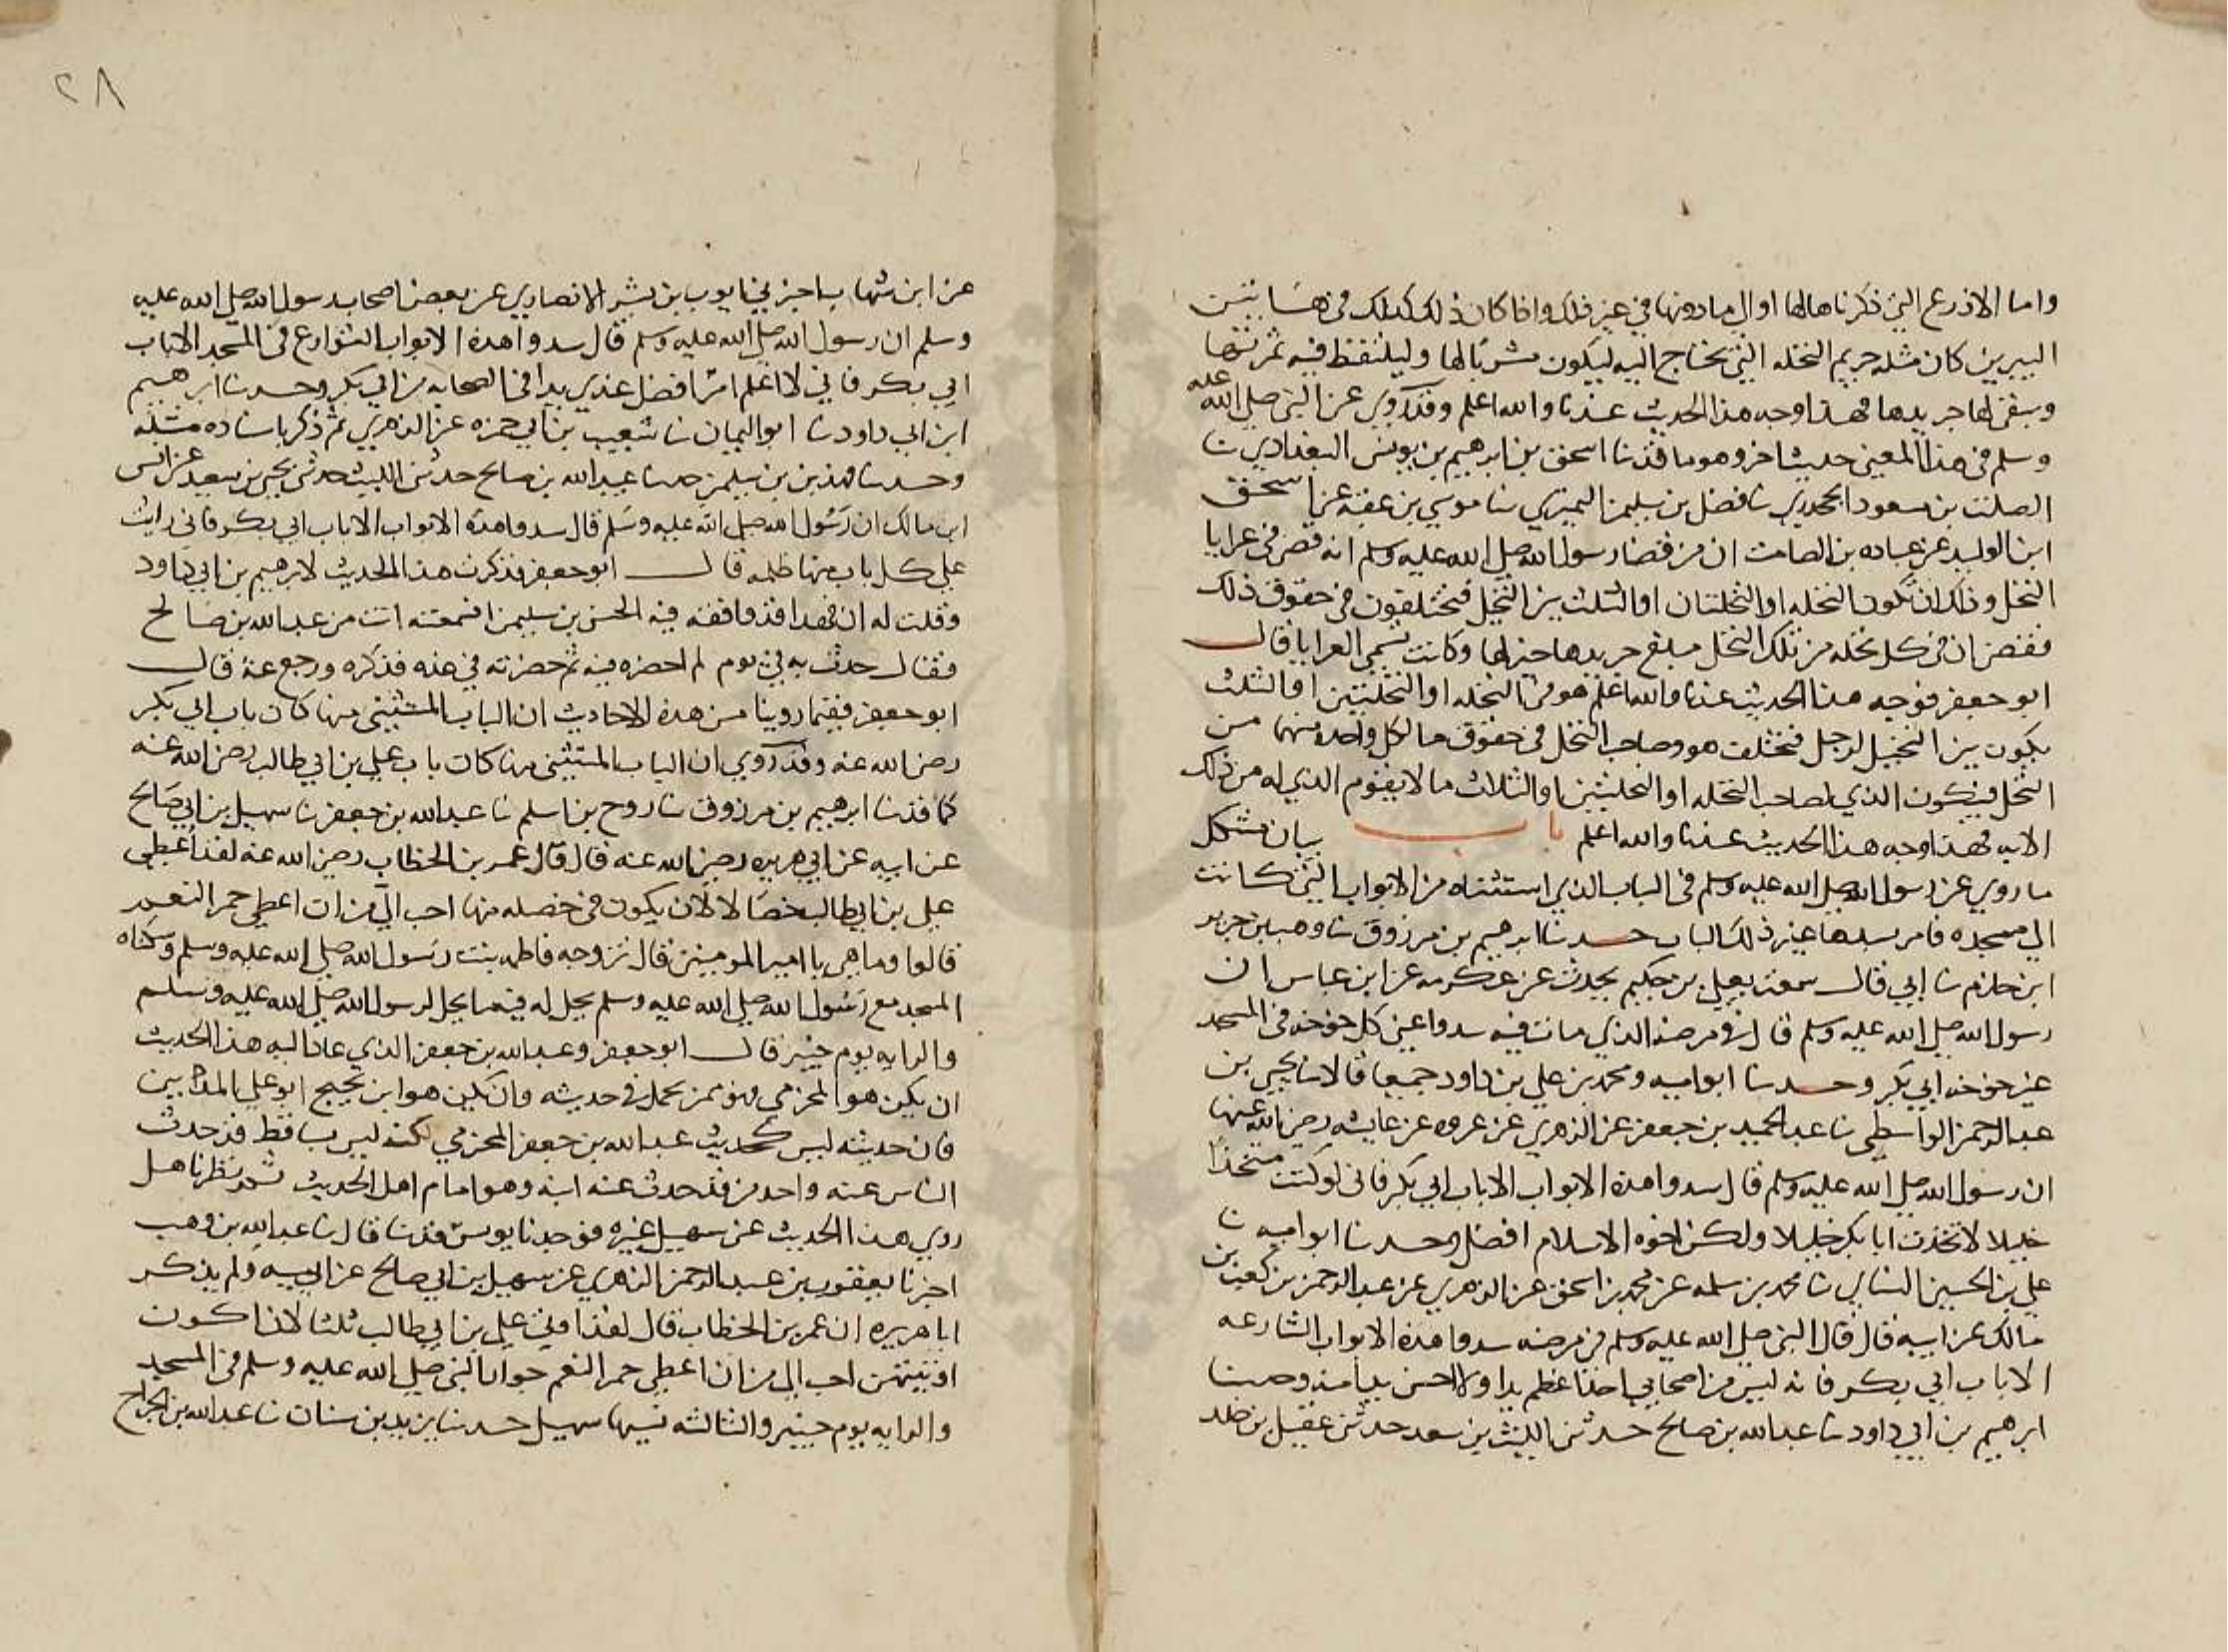 واما الاذرع التي ذكرنا هالها او الي ما دونها في غير ذلك واذا كان ذلك كذلك في هاتين
البيرين كان مثله حريم النخله التي يحتاج اليه ليكون مشربا لها وليلتقط فيه ثمرتها
وسقي لها جريدها فهذا وجه هذا الحديث عندنا والله اعلم وقد روي عن النبي صلى الله عليه
وسلم في هذا المعني حديث اخر وهو ما قد نا اسحق بن ابرهيم بن يونس البغدادي نا
الصلت بن مسعود الجحدري نا فضل بن سليمن النميري نا موسي بن عقبه عن اسحق
ابن الوليد عن عباده بن الصامت ان من قضا رسول الله صلى الله عليه وسلم انه قضي في عرايا
النخل وذلك ان تكون النخله او النخلتان او الثلث بين النخل فيختلفون في حقوق ذلك
فقضي ان في كل نخله من تلك النخل مبلغ جريدها حيز لها وكانت تسمي العرايا قال
ابو جعفر فوجه هذا الحديث عندنا والله اعلم هو في النخله او النخلتين او الثلث
يكون بين النخيل لرجل فيختلف هو وصاحب النخل في حقوق ما لكل واحد منهما من
النخل فيكون الذي لصاحب النخله او النخلتين او الثلاث ما لا يقوم الذي له من ذلك
الا به فهذا وجه هذا الحديث عندنا والله اعلم باب بيان مشكل
ما روي عن رسول الله صلى الله عليه وسلم في الباب الذي استثناه من الابواب التي كانت
الي مسجده فامر بسدها غير ذلك الباب حدثنا ابرهيم بن مرزوق نا وهب بن جرير
ابن حازم نا ابي قال سمعت يعلي بن حكيم يحدث عن عكرمه عن ابن عباس ان
رسول الله صلى الله عليه وسلم قال في مرضه الذي مات فيه سدوا عني كل خوخه في المسجد
غير خوخه ابي بكر وحدثنا ابو اميه ومحمد بن علي بن داود جميعا قالا نا يحيي بن
عبد الرحمن الواسطي نا عبد الحميد بن جعفر عن الزهري عن عروه عن عايشه رضي الله عنها
ان رسول الله صلى الله عليه وسلم قال سدوا هذه الابواب الا باب ابي بكر فاني لو كنت متخذا
خليلا لاتخذت ابا بكر خليلا ولكن اخوه الاسلام افضل وحدثنا ابو اميه نا
علي بن الحسين النسابي نا محمد بن سلمه عن محمد بن اسحق عن الزهري عن عبد الرحمن بن كعب بن
مالك عن ابيه قال قال النبي صلى الله عليه وسلم في مرضه سدوا هذه الابواب الشارعه
الا باب ابي بكر فانه ليس من اصحابي احد اعظم يدا ولا احسن بلا منه وحدثنا
ابرهيم بن ابي داود نا عبد الله بن صالح حدثني الليث بن سعد حدثني عقيل بن خلد
٢٨
عن ابن شهاب اخبرني ايوب بن بشير الانصاري عن بعض اصحاب رسول الله صلى الله عليه
وسلم ان رسول الله صلى الله عليه وسلم قال سدوا هذه الابواب الشوارع في المسجد الا باب
ابي بكر فاني لا اعلم امرا افضل عندي يدا في الصحابه من ابي بكر وحدثنا ابرهيم
ابن ابي داود نا ابو اليمان نا شعيب بن ابي حمزه عن الزهري ثم ذكر باسناده مثله
وحدثنا فهد بن سليمن حدثنا عبد الله بن صالح حدثني الليث حدثني يحيي بن سعيد عن انس
ابن مالك ان رسول الله صلى الله عليه وسلم قال سدوا هذه الابواب الا باب ابي بكر فاني رايت
علي كل باب منها ظلمه قال ابو جعفر فذكرت هذا الحديث لابرهيم بن ابي داود
وقلت له ان فهدا قد وافقه فيه الحسن بن سليمن افسمعته انت من عبد الله بن صالح
فقال حدث به في يوم لم احضره فيه ثم حضرته في غده فذكره ورجع عنه قال
ابو جعفر ففيما روينا من هذه الاحاديث ان الباب المستثني منها كان باب ابي بكر
رضي الله عنه وقد روي ان الباب المستثني منها كان باب علي بن ابي طالب رضي الله عنه
كما قد نا ابرهيم بن مرزوق نا روح بن اسلم نا عبد الله بن جعفر نا سهيل بن ابي صالح
عن ابيه عن ابي هريره رضي الله عنه قال قال عمر بن الخطاب رضي الله عنه لقد اعطي
علي بن ابي طالب خصالا لان يكون في خصله منها احب الي من ان اعطي حمر النعم
قالوا وما هي يا امير المومنين قال تزوجه فاطمه بنت رسول الله صلى الله عليه وسلم وسكناه
المسجد مع رسول الله صلى الله عليه وسلم يحل له فيه ما يحل لرسول الله صلى الله عليه وسلم
والرايه يوم خيبر قال ابو جعفر وعبد الله بن جعفر الذي عاد اليه هذا الحديث
ان يكن هو المخرمي فهو ممن يحمد في حديثه وان يكن هو ابن نجيح ابو علي المديني
فان حديثه ليس كحديث عبد الله بن جعفر المخرمي لكنه ليس بساقط قد حدث
الناس عنه واحد من قد حدث عنه ابنه وهو امام اهل الحديث ثم نظرنا هل
روي هذا الحديث عن سهيل غيره فوجدنا يونس قد نا قال نا عبد الله بن وهب
اخبرنا يعقوب بن عبد الرحمن الزهري عن سهيل بن ابي صالح عن ابيه ولم يذكر
ابا هريره ان عمر بن الخطاب قال لقد اوتي علي بن ابي طالب ثلثا لان اكون
اوتيتهن احب الي من ان اعطي حمر النعم جوار النبي صلى الله عليه وسلم في المسجد
والرايه يوم خيبر والثالثه نسيها سهيل حدثنا يزيد بن سنان نا عبد الله بن الجراح